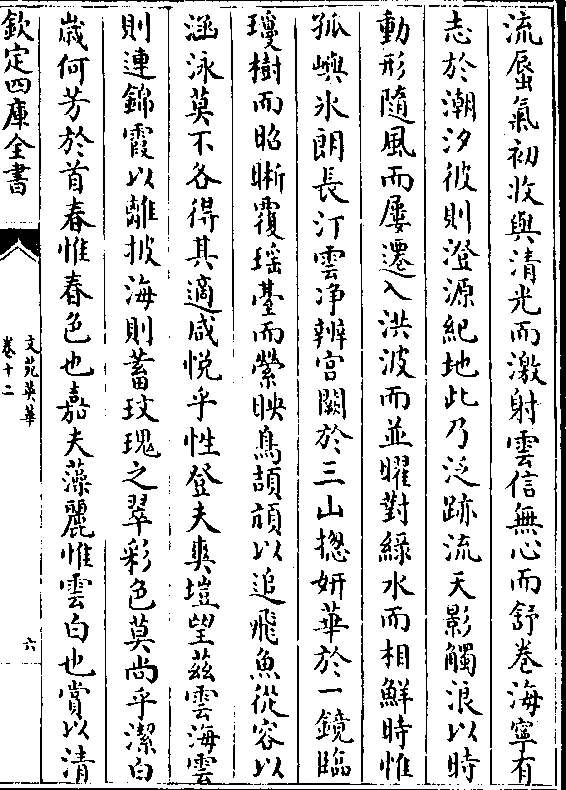 流蜃氣初收與清光而激射雲信無心而舒卷海寧有
志於潮汐彼則澄源紀地此乃泛跡流天影觸浪以時
動形隨風而屢遷入洪波而並曜對綠水而相鮮時惟
孤嶼氷朗長汀雲净辨宫闕於三山揔妍華於一鏡臨
瓊樹而昭晣覆瑶臺而縈映鳥頡頏以追飛魚從容以
涵泳莫不各得其適咸悦乎性登夫爽塏望兹雲海雲
則連錦霞以離披海則蓄玟瑰之翠彩色莫尚乎潔白
嵗何芳於首春惟春色也嘉夫藻麗惟雲白也賞以清
欽定四庫全書
文苑英華
卷十二
六